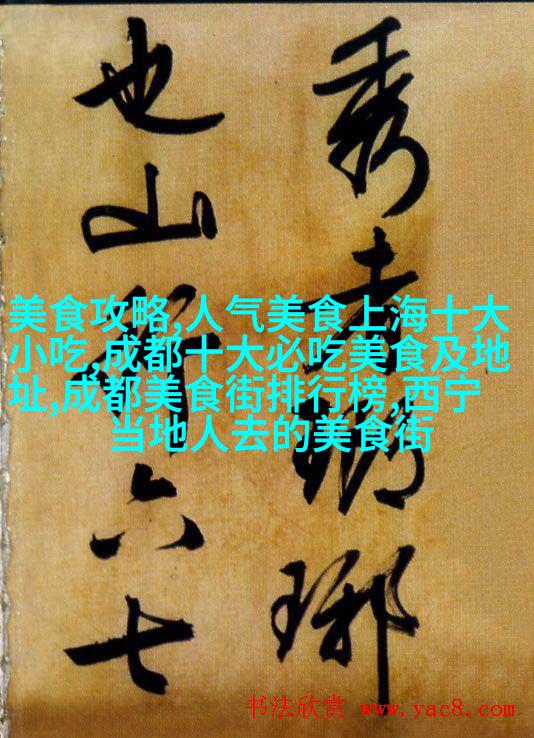 秀者瑯琊
也山行六七
美食攻略,人气美食上海十大
小吃,成都十大必吃美食及地
址,成都美食街排行榜,西宁
当地人去的美食街
书法欣赏 www.yac8.com